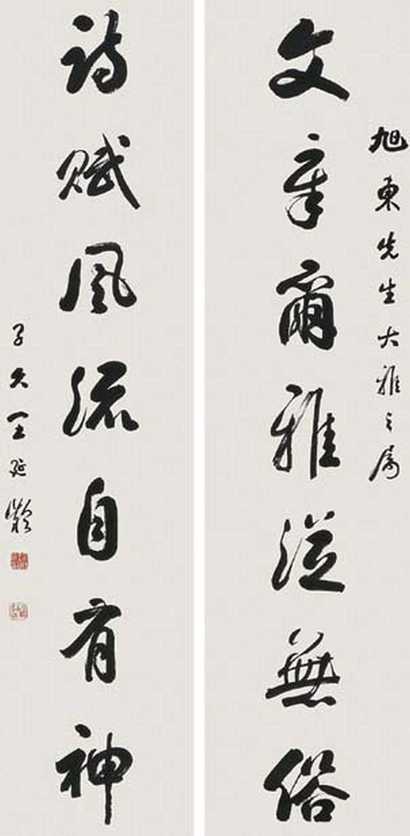 旭東先生大雅之屬
文章爾雅從無俗
詩賦風流自有神
子久王延